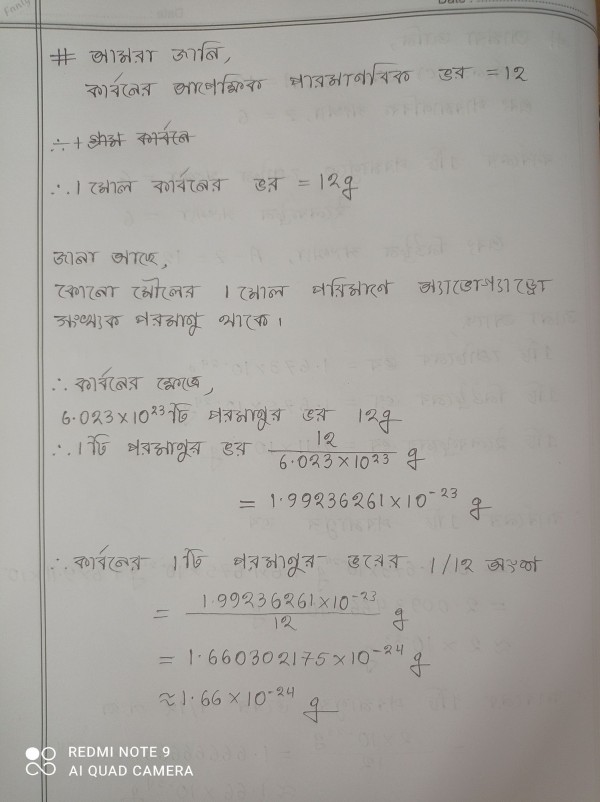 # আমরা জানি,
কার্বনের আপেক্ষিক পারমাণবিক ভর = 12
∴ 1 মোল কার্বনের ভর = 12g
জানা আছে,
কোনো মৌলের 1 মোল পরিমাণে অ্যাভোগ্যাড্রো
সংখ্যক পরমাণু থাকে।
∴ কার্বনের ক্ষেত্রে,
6.023×10²³ টি পরমাণুর ভর 12g
∴ 1 টি পরমাণুর ভর 12 / 6.023×10²³ g
= 1.99236261×10⁻²³ g
∴ কার্বনের 1টি পরমাণুর ভরের 1/12 অংশ
= 1.99236261×10⁻²³ / 12 g
= 1.660302175×10⁻²⁴ g
≈ 1.66×10⁻²⁴ g
REDMI NOTE 9
AI QUAD CAMERA